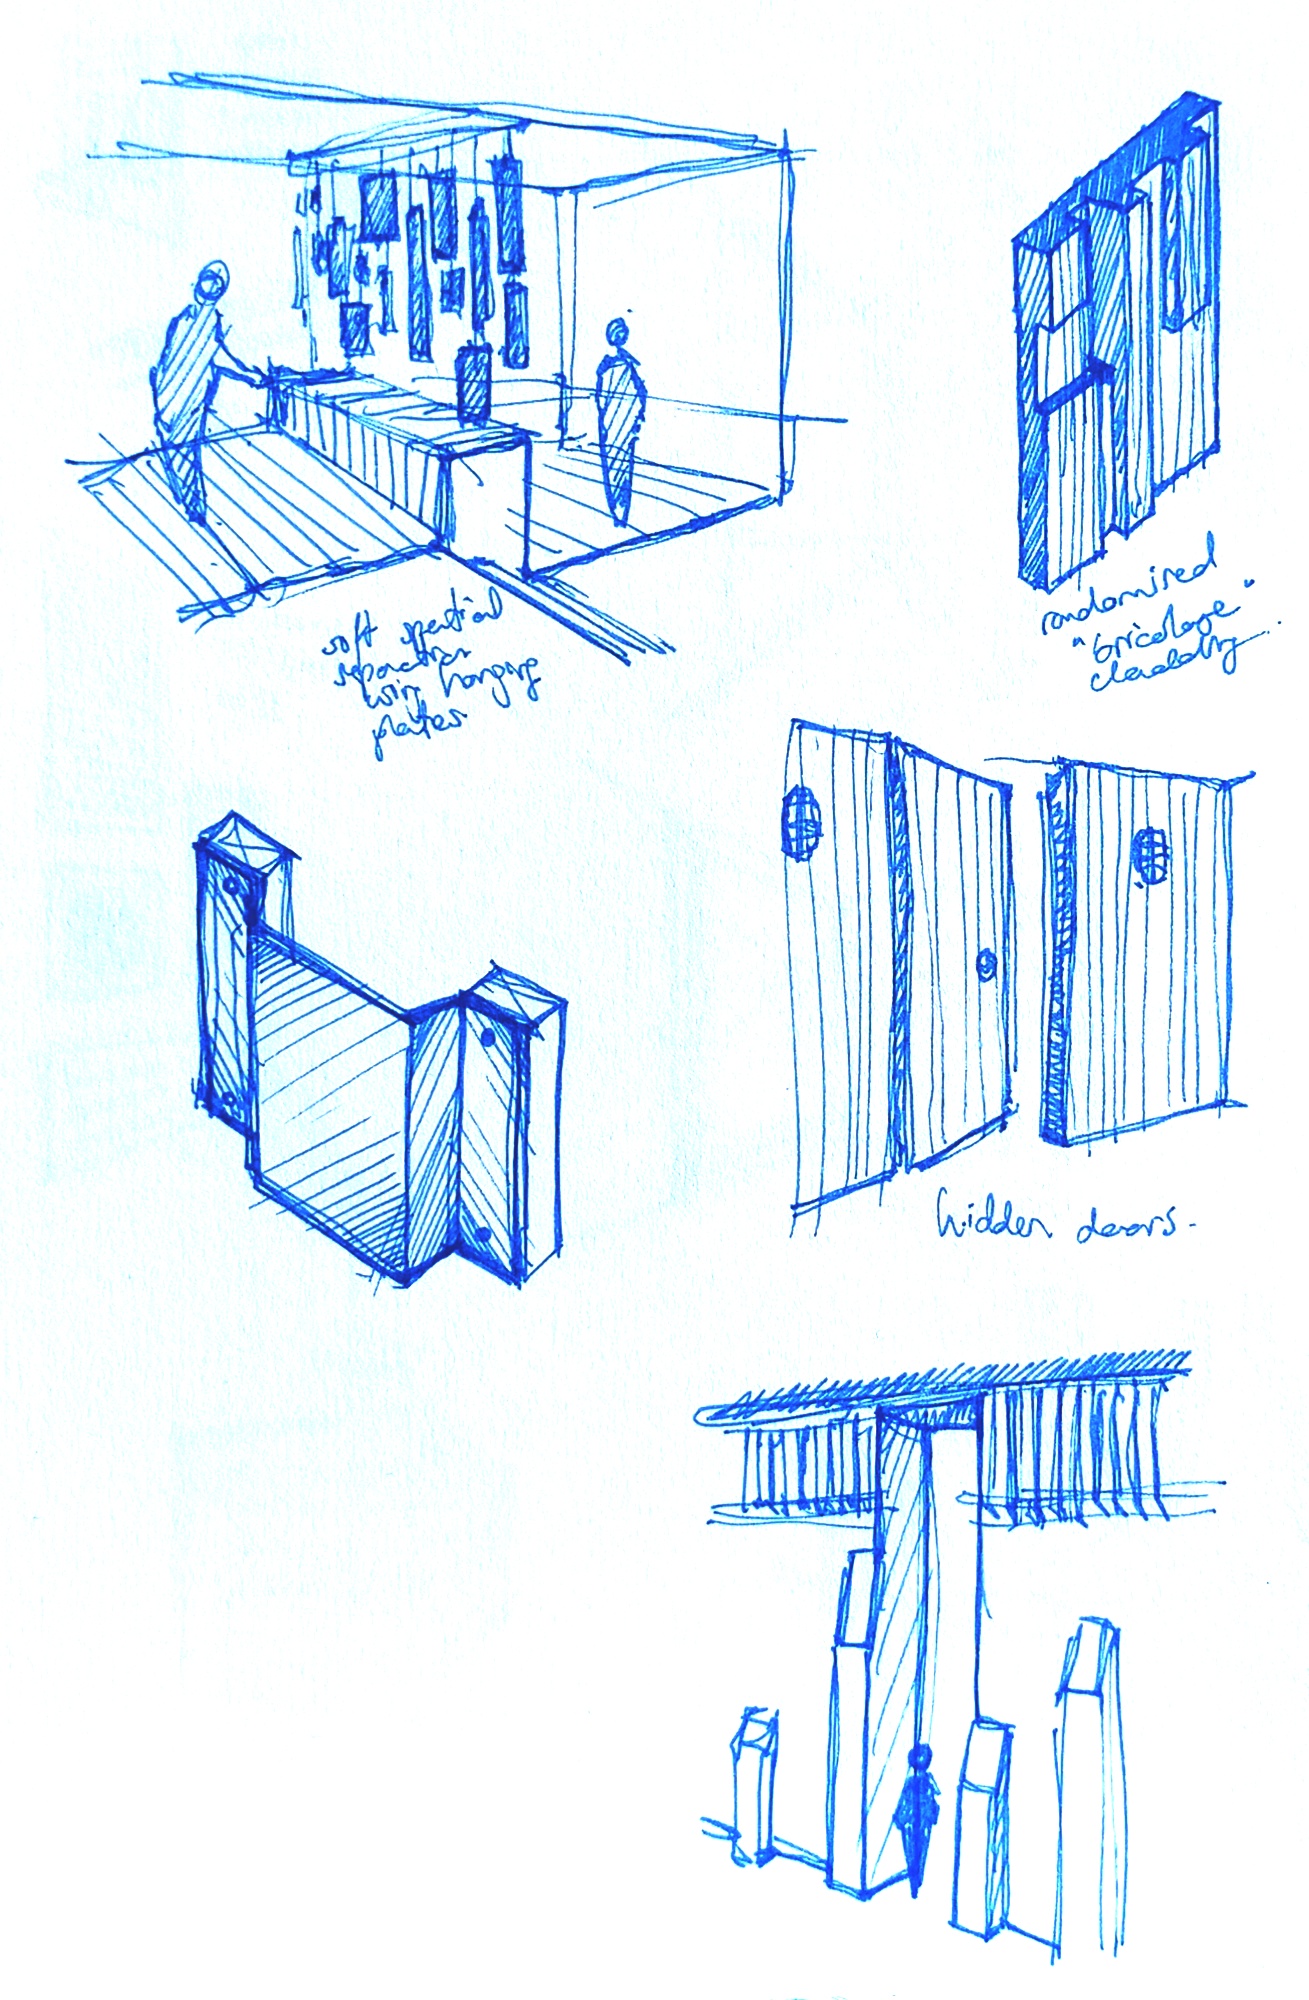 soft spatial
separation
with hanging
plates
randomised
"bricolage"
cladding
hidden doors.